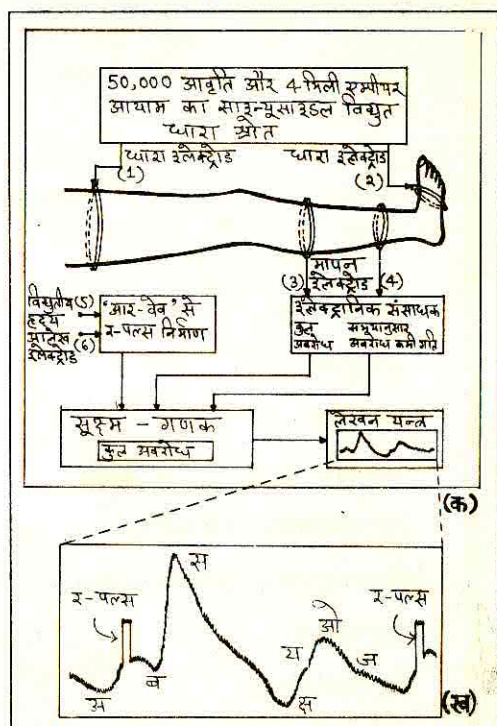 50,000 आवृति और 4 मिली एम्पीयर
आयाम का साइन्यूसाइडल विद्युत
धारा स्रोत
धारा इलेक्ट्रोड
(1)
धारा इलेक्ट्रोड
(2)
मापन
(3) इलेक्ट्रोड (4)
विद्युतीय (5)
हृदय
आलेख (6)
इलेक्ट्रोड
'आर-वेव' से
र-पल्स निर्माण
इलेक्ट्रानिक संसाधक
कुल समयानुसार
अवरोध अवरोध कमी गति
सूक्ष्म - गणक
कुल अवरोध
लेखन यन्त्र
(क)
र-पल्स
अ
ब
स
क्ष
य
ओ
ज
र-पल्स
(ख)